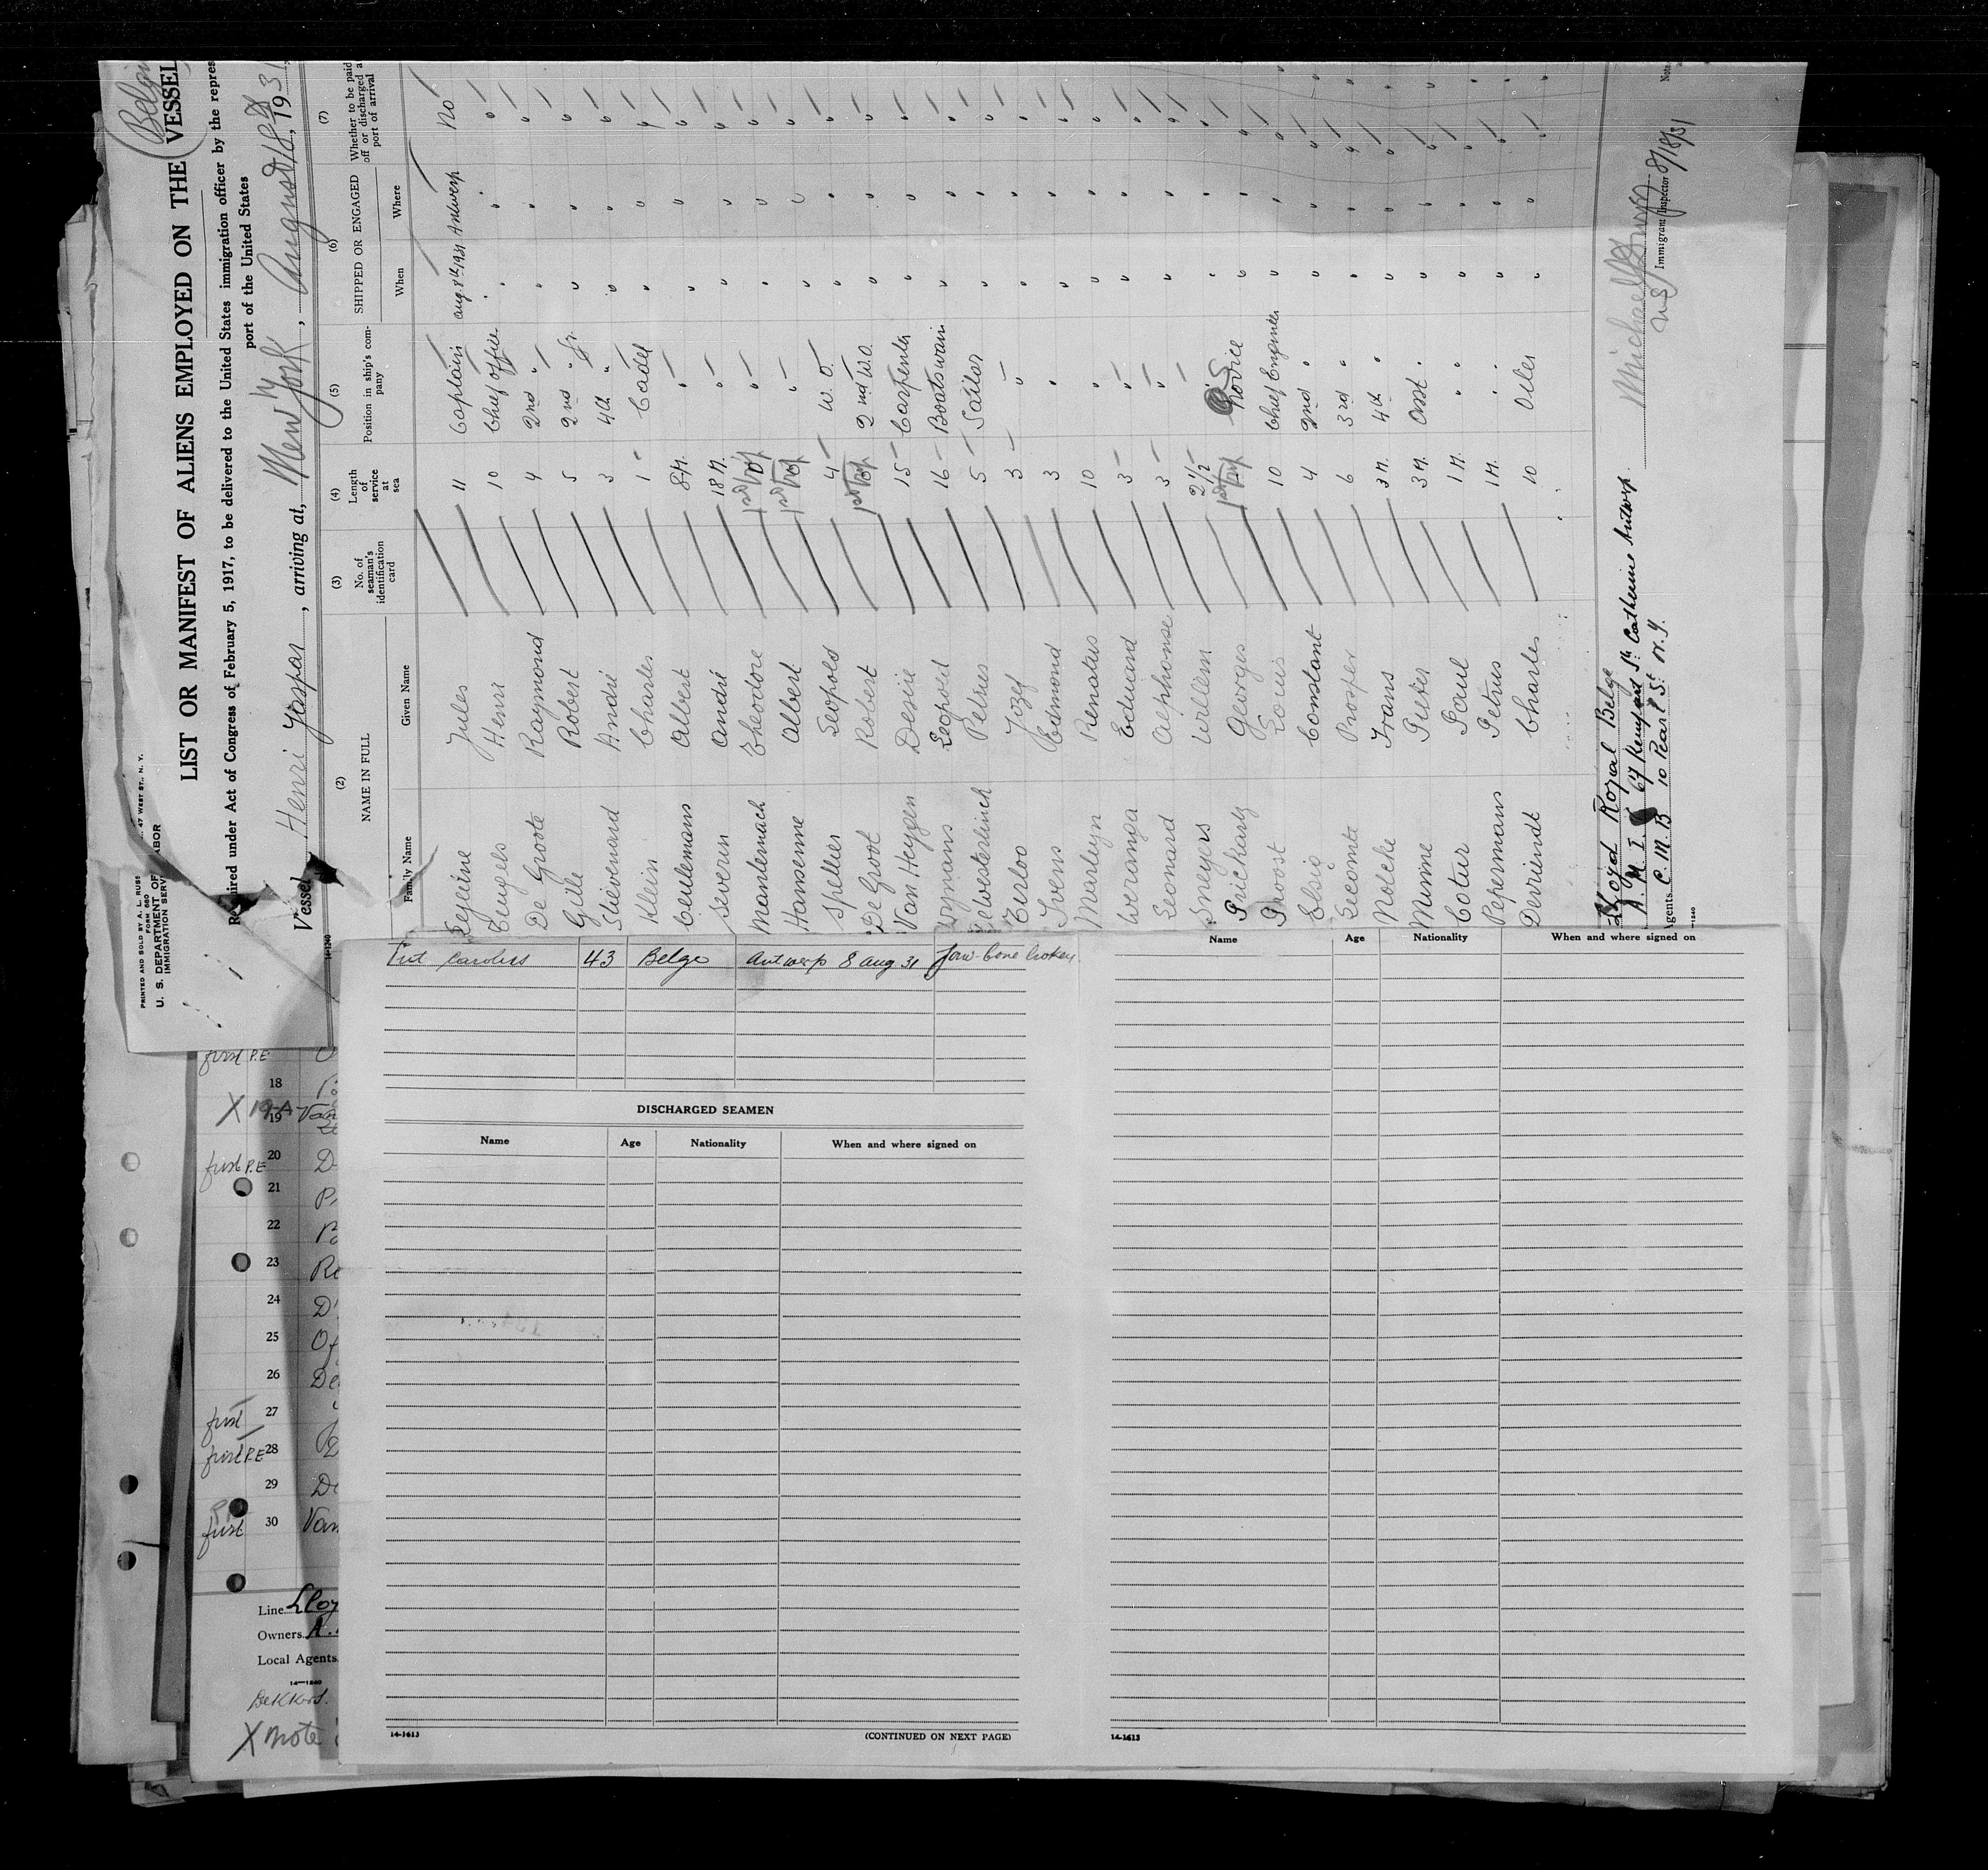 Belgi
PRINTED AND SOLD BY A. L. RUSS 47 WEST ST., N. Y.
FORM 680
U. S. DEPARTMENT OF LABOR
IMMIGRATION SERV
LIST OR MANIFEST OF ALIENS EMPLOYED ON THE VESSEL
Required under Act of Congress of February 5, 1917, to be delivered to the United States immigration officer by the repres
port of the United States
Vessel Henri Jaspar, arriving at, New York, August 18th, 1931,
(2) (3) (4) (5) (6) (7)
NAME IN FULL
Family Name Given Name
No. of seaman's identification card
Length of service at sea
Position in ship's company
SHIPPED OR ENGAGED
When Where
Whether to be paid off or discharged a port of arrival
Jules 11 Captain aug. 8th 1931 Antwerp No
Henri 10 Chief Officer " " "
De Groote Raymond 4 2nd " " " "
Gille Robert 5 2nd " Jr " " "
Stievenard André 3 4th " " " "
Klein Charles 1 Cadet " " "
Ceulemans Albert 8 M. " " " "
Severin André 18 M. " " " "
Mantlemach Theodore " " " "
Hansenne Albert " " " "
Leopold 4 W. O. " " "
De Groot Robert 2nd W.O. " " "
Van Heygen Desiré 15 Carpenter " " "
Leopold 16 Boatswain " " "
Petrus 5 Sailor " " "
Terloo Jozef 3 " " " "
Ivens Edmond 3 " " " "
Marleyn Renatus 10 " " " "
Weranga Eduard 3 " " " "
Leonard Alphonse 3 " " " "
Smeyers Willem 2 1/2 " " "
Prichartz Georges Novice " " "
Provost Louis 10 Chief Engineer " " "
Elsig Constant 4 2nd " " " "
Lecomte Prosper 6 3rd " " " "
Nolcke Frans 3 M. 4th " " " "
Mumme Pieter 3 M. Asst. " " " "
Cotur Paul 1 M. " " " " "
Pepermans Petrus 1 M. " " " " "
Devriendt Charles 10 Oiler " " "
Lloyd Royal Belge
A. M. I. 67 Rempart St. Catherine Antwerp.
gents C. M. B 10 Pearl St. N. Y.
Michael
Immigrant Inspector 8/18/51
Note
14-1240
Carolus 43 Belge Antwerp 8 aug 31 Jaw-bone broken
DISCHARGED SEAMEN
Name Age Nationality When and where signed on
14-1613 (CONTINUED ON NEXT PAGE)
Name Age Nationality When and where signed on
14-1613
first P.E
18
X 19A 19 Van
first P.E 20 D
21
22
23 Re
24 D'
25
26 De
first 27
first P.E 28
29 De
first 30 Van
Line Lloy
Owners A.
Local Agents
14-1240
X Note